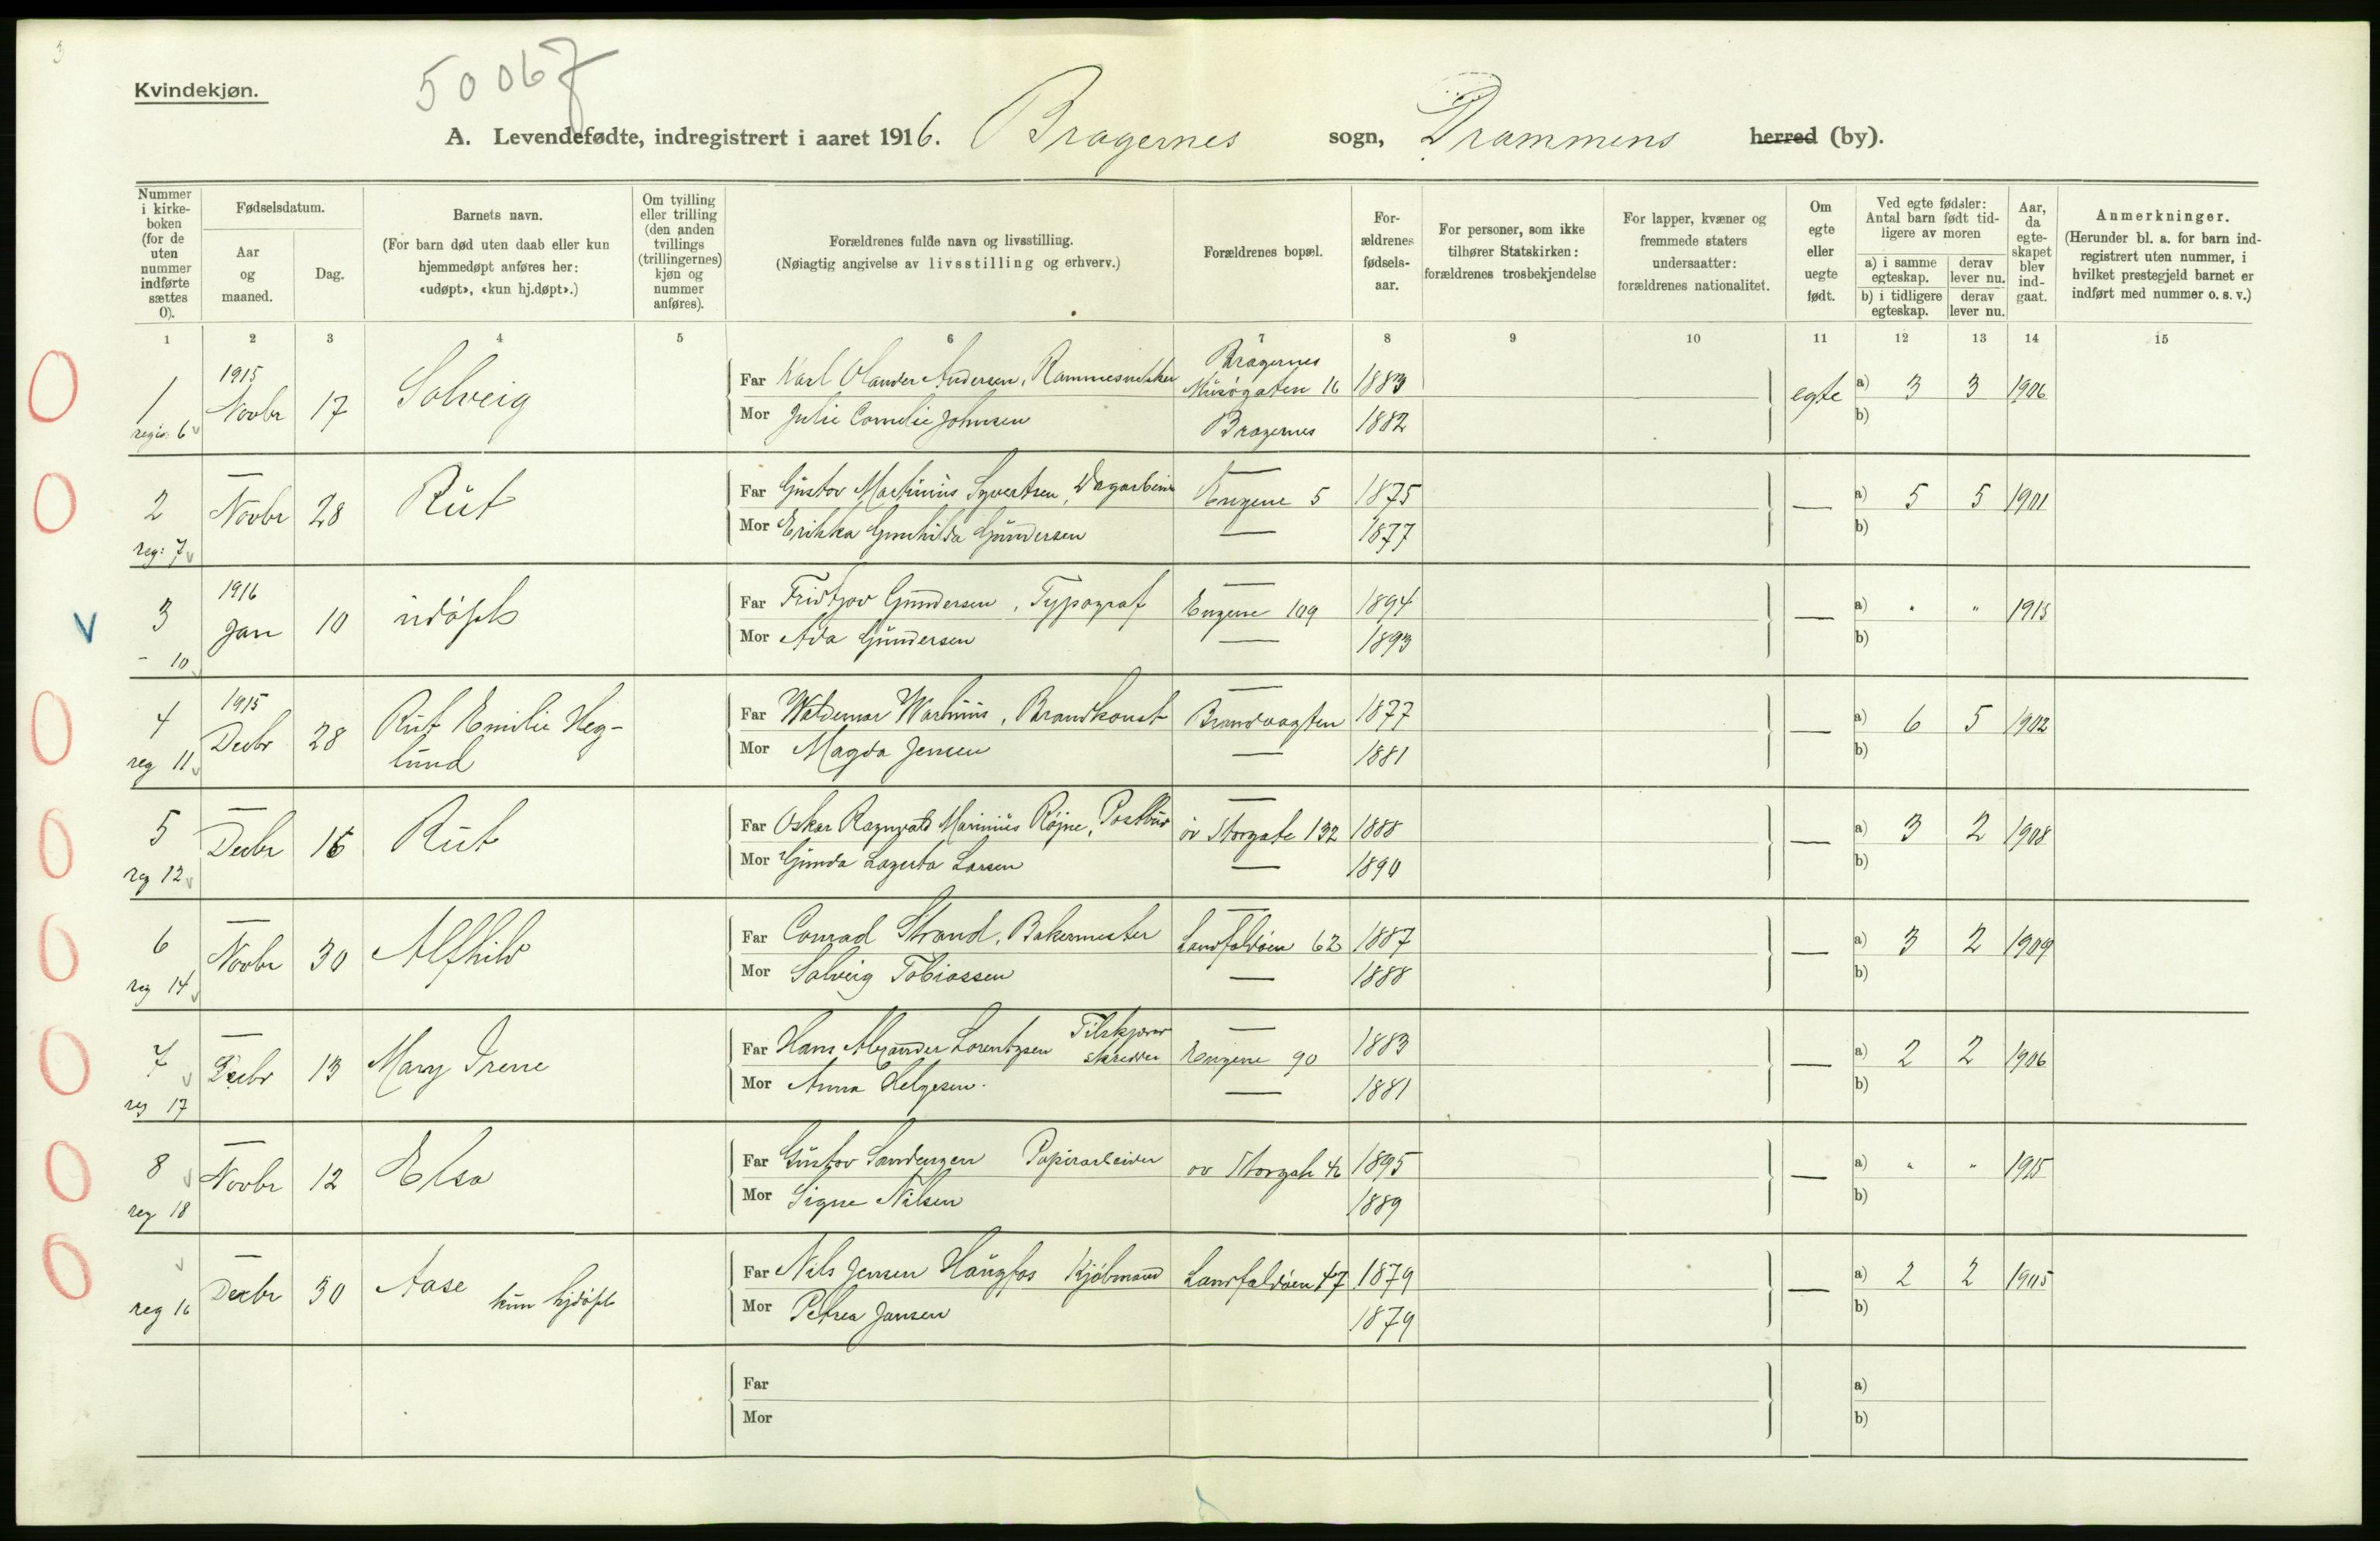 3
50067
Kvindekjøn.
A. Levendefødte, indregistrert i aaret 1916. Bragernes sogn, Drammens herred (by).
Nummer i kirkeboken (for de uten nummer indførte sættes 0).
Fødselsdatum.
Aar og maaned.
Dag.
Barnets navn.
(For barn død uten daab eller kun hjemmedøpt anføres her: «udøpt», «kun hj.døpt».)
Om tvilling eller trilling (den anden tvillings (trillingernes) kjøn og nummer anføres).
Forældrenes fulde navn og livsstilling.
(Nøiagtig angivelse av livsstilling og erhverv.)
Forældrenes bopæl.
Forældrenes fødselsaar.
For personer, som ikke tilhører Statskirken: forældrenes trosbekjendelse
For lapper, kvæner og fremmede staters undersaatter: forældrenes nationalitet.
Om egte eller uegte født.
Ved egte fødsler: Antal barn født tidligere av moren
a) i samme egteskap. derav lever nu.
b) i tidligere egteskap. derav lever nu.
Aar, da egteskapet blev indgaat.
Anmerkninger.
(Herunder bl. a. for barn indregistrert uten nummer, i hvilket prestegjeld barnet er indført med nummer o. s. v.)
1 2 3 4 5 6 7 8 9 10 11 12 13 14 15
1 regis: 6 1915 Novbr 17 Solveig
Far Karl Olander Andersen, Rammesnekker Bragernes Musegaten 16 1883 egte a) 3 3 1906
Mor Julie Cornelie Johnsen Bragernes 1882 b)
2 reg: 7 — Novbr 28 Rut
Far Gustav Martinius Syvertsen, Dagarbeider — Engene 5 1875 — a) 5 5 1901
Mor Erikka Gunhilda Gundersen — 1877 b)
3 - 10 1916 Jan 10 udøpt
Far Fridtjov Gundersen, Typograf — Engene 109 1894 — a) " " 1915
Mor Ada Gundersen — 1893 b)
4 reg 11 1915 Decbr 28 Rut Emilie Heglund
Far Waldemar Martinius, Brandkonst — Brandvagten 1877 — a) 6 5 1902
Mor Magda Jensen — 1881 b)
5 reg 12 — Decbr 16 Rut
Far Oskar Ragnvald Marinius Røjne, Postbud — øv Storgate 132 1888 — a) 3 2 1908
Mor Gunda Lagerta Larsen — 1890 b)
6 reg 14 — Novbr 30 Alfhild
Far Conrad Strand, Bakermester — Landfaldøen 62 1887 — a) 3 2 1909
Mor Solveig Tobiassen — 1888 b)
7 reg 17 — Decbr 13 Mary Irene
Far Hans Alexander Lorentzsen Tilskjærer skrædder — Engene 90 1883 — a) 2 2 1906
Mor Anna Helgesen. — 1881 b)
8 reg 18 — Novbr 12 Elsa
Far Gustav Sandengen Papirarbeider ov Storgate 42 1895 — a) " " 1915
Mor Signe Nilsen 1889 b)
reg 16 — Decbr 30 Aase kun hjdøpt
Far Nils Jensen Haugfos Kjøbmand Landfaldøen 47 1879 — a) 2 2 1905
Mor Petrea Jansen 1879 b)
Far a)
Mor b)